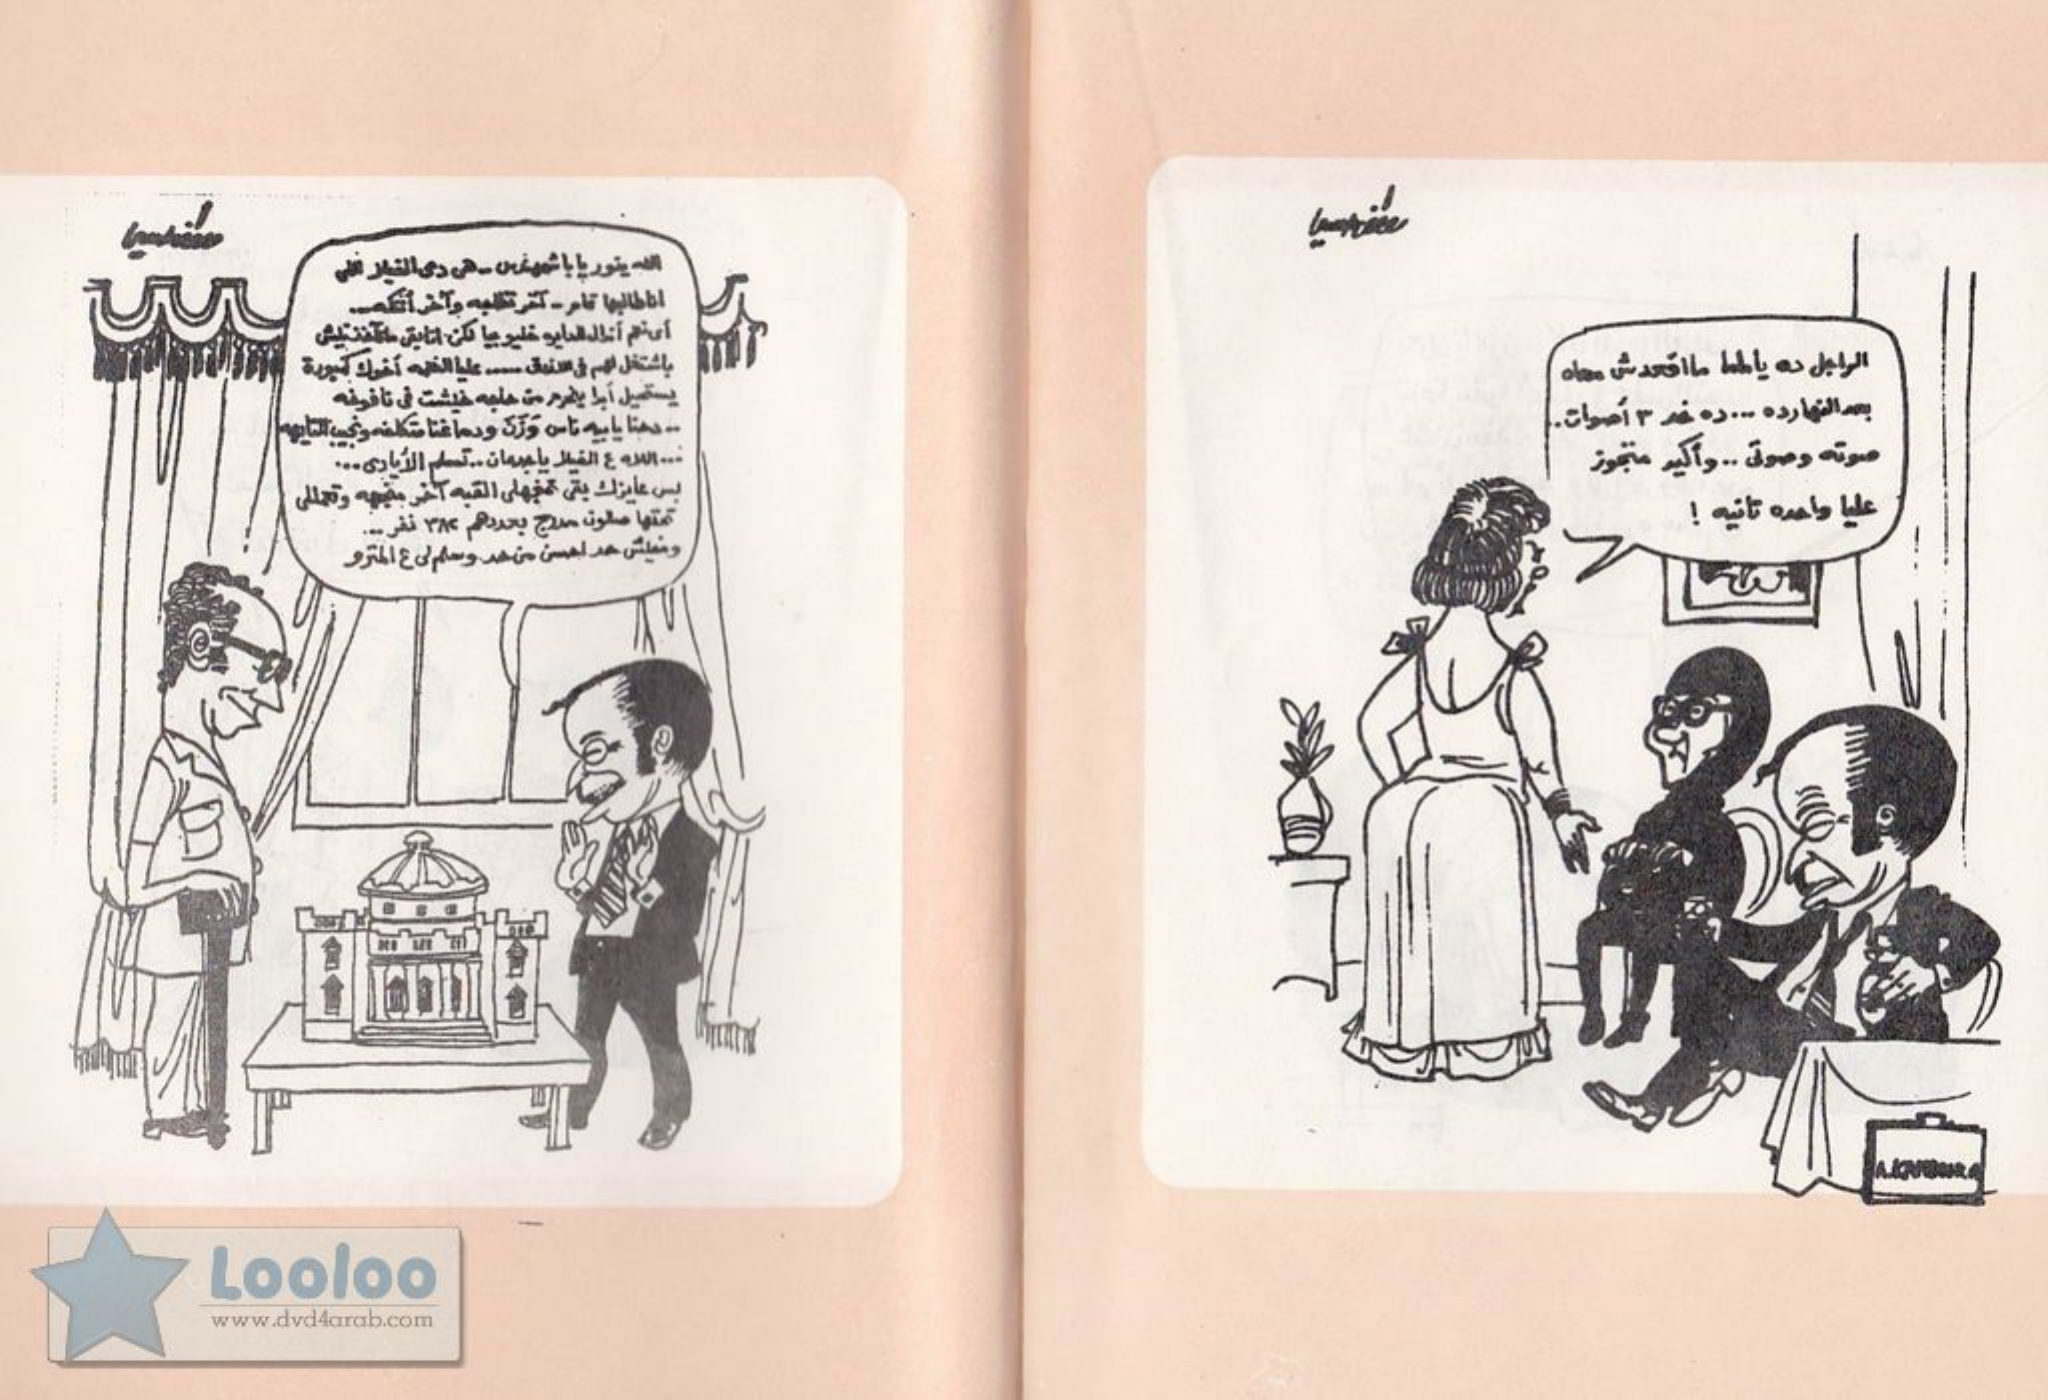 الراجل ده يا ماما ما اقعدش معاه
بعد النهارده ... ده خد ٣ أصوات ..
صوته وصوتى .. وأكيد متجوز
عليا واحده تانيه !
A.KAMBURA
الله ينور يا باشمهندس - هى دى الفيلا اللى
انا طالبها تمام - آخر نقلبه وآخر أنتكه ..
أى نعم أنزال الدايره خليو بيا لكن انا بقى ما
باشتغل لهم فى ..... عليا النعمه أخوك كمبورة
يستحيل أبدا يتحرم من حاجه خيشت فى نافوخه
.. دحنا يا بيه ناس وَزَنْ ودماغنا متكلفه ونجيب التايهه
... الله ع الفيلا يا جدعان .. تسلم الأيادى ...
بس عايزك بقى القبه آخر وتعمللى
تحتها صالون مدرج بعددهم ٣٨٢ نفر ...
ومفيش حد احسن من حد وسلم لى ع المترو
Looloo
www.dvd4arab.com